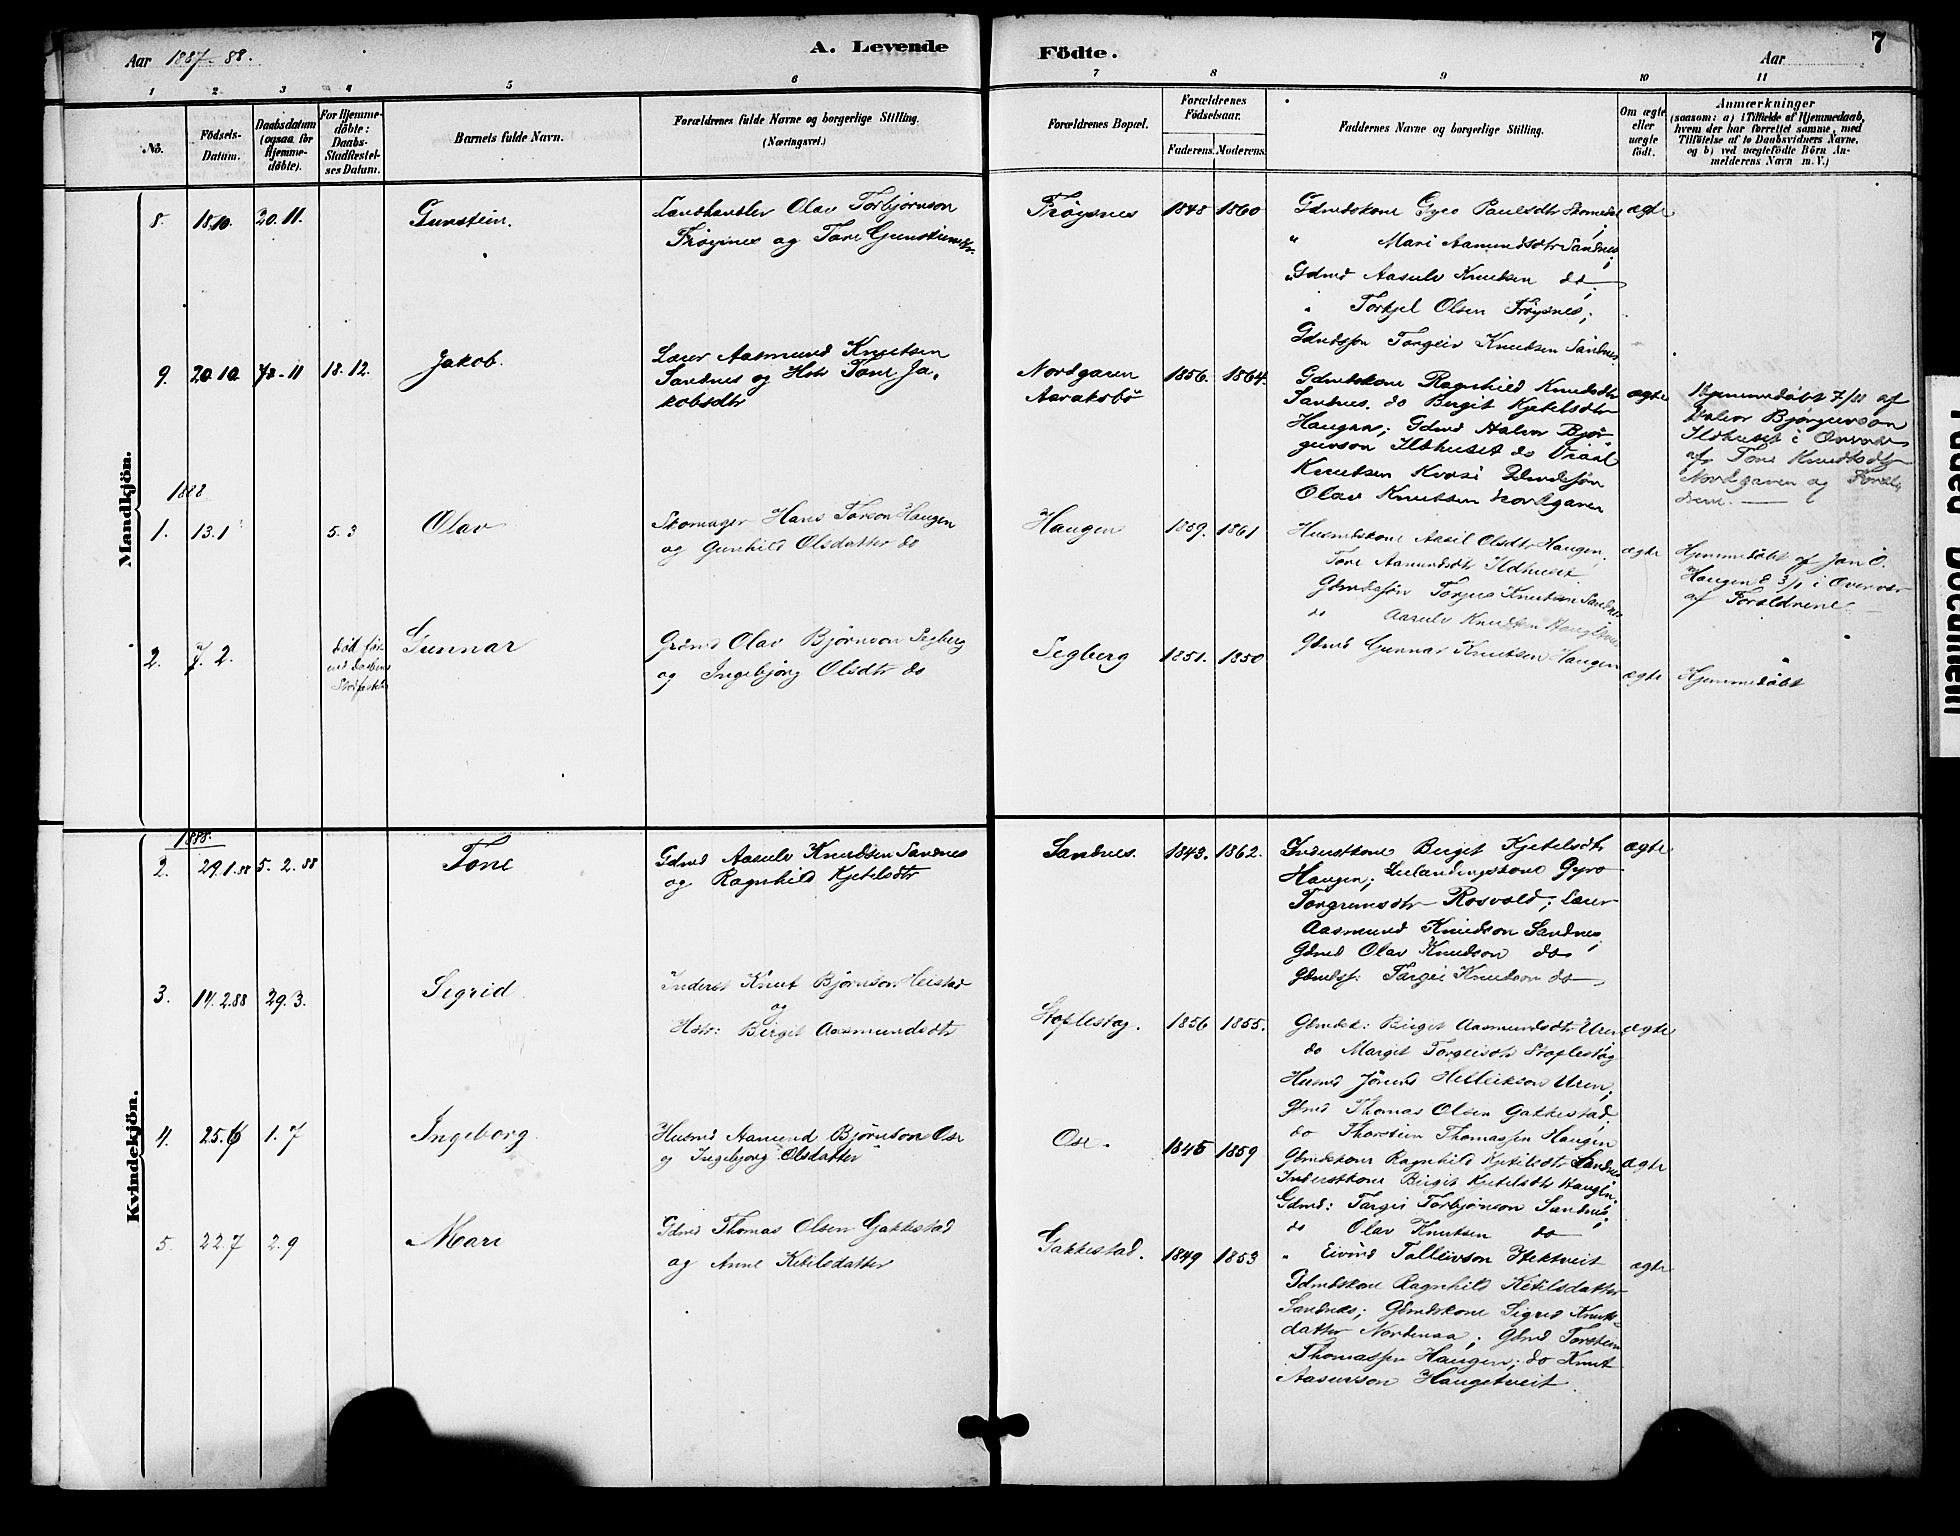 Aar 1887-88.
A. Levende
Födte.
Aar
7
1 2 3 4 5 6 7 8 9 10 11
No.
Födsels-
Datum.
Daabsdatum
(ogsaa for
Hjemme-
döbte).
For Hjemme-
döbte:
Daabs-
Stadfæstel-
ses Datum.
Barnets fulde Navn.
Forældrenes fulde Navne og borgerlige Stilling.
(Næringsvei.)
Forældrenes Bopæl.
Forældrenes
Födselsaar.
Faderens. Moderens.
Faddernes Navne og borgerlige Stilling.
Om ægte
eller
uægte
födt.
Anmærkninger
(saasom: a) i Tilfælde af Hjemmedaab,
hvem der har forrettet samme, med
Tilföielse af to Daabsvidners Navne,
og b) ved uægtefödte Börn An-
melderens Navn m. V.)
Mandkjön.
8. 18.10. 20.11. Gunstein.
Landhandler Olav Torbjørnson
Frøysnes og Tone Gunsteinsdtr.
Frøysnes 1848 1860
Gdmdskone Gyro Paulsdtr
" Mari Aamundsdtr Sandnes;
Gdmd Aasulv Knutsen do;
" Torkjel Olsen Frøysnes;
Gdmdssøn Torgeir Knudsen Sandnes
ægte
9. 20.10 7.11 18.12. Jakob.
Lærer Aasmund Knutsen
Sandnes og Hstr Tone Ja-
kobsdtr
Nordgaren
Aaraksbø
1856. 1864.
Gdmdskone Ragnhild Knudsdtr
Sandnes. do Birgit Kjetelsdtr
Haugen; Gdmd Halvor Bjør-
gunson Ildhuset do
Knutsen Gdmdssøn
Olav Knutsen Nordgaren
ægte
Hjemmedøbt 7/11 af
Halvor Bjørgunson
Ildhuset i Overvær
af Tone Knudtsdtr
Nordgaren og Foræl-
drene.
1888
1. 13.1 5.3 Olav
Skomager Hans Torson Haugen
og Gunhild Olsdatter do
Haugen 1859. 1861
Husmdskone Aasil Olsdtr Haugen,
Tone Aamundsdtr Ildhuset.
Gdmdssøn Torjus Knutsen Sandnes
do Aasulv Knudsen
ægte
Hjemmedøbt af Jon O.
Haugen d. 3/1 i Overvær
af Forældrene
2. 7.2. Død før-
end Daabens
Stadfæstelse
Gunnar
Grdmd Olav Bjørnson Segberg
og Ingebjørg Olsdtr do
Segberg 1851. 1850
Gdmd Gunnar Knutsen Haugen
ægte
Hjemmedøbt
Kvindekjön.
1888.
2. 29.1.88 5.2.88 Tone
Gdmd Aasulv Knudsen Sandnes
og Ragnhild Kjetelsdtr
Sandnes. 1843. 1862.
Inderstkone Birgit Kjetelsdtr
Haugen; Gyro
Torgrimsdtr Rosvold; Lærer
Aasmund Knudson Sandnes
Gdmd Olav Knudson do;
Gdmdss: Targei Knudson do
ægte
3. 14.2.88 29.3. Sigrid.
Inderst Knut Bjørnson Heistad
og
Hstr: Birgit Aasmundsdtr
Stoplestøg. 1856 1855.
Gdmdsk: Birgit Aasmundsdtr Uren;
do Margit Torgeisdtr Stoplestøg
Husmd Jørund Hellekson Uren;
Gdmd Thomas Olsen Gakkestad;
do Thorstein Thomassen Haugen
ægte
4. 25.6 1.7 Ingeborg.
Husmd Aamund Bjørnson Ose
og Ingebjorg Olsdatter
Ose. 1845 1859
Gdmdskone Ragnhild Kjetilsdtr Sandnes
Inderstkone Birgit Kjetelsdtr Haugen.
Gdmd: Targei Torbjørnson Sandnes;
do Olav Knutsen do
" Eivind Tolleivson Hektveit
ægte
5. 22.7 2.9 Mari
Gdmd Thomas Olsen Gakkestad
og Anne Ketilsdatter
Gakkestad. 1849 1853
Gdmdskone Ragnhild Ketilsdatter
Sandnes; Gdmdskone Sigrid Knuts-
datter Nordenaa; Gdmd Torstein
Thomassen Haugen; do Knut
Aasulvson Haugetveit.
ægte